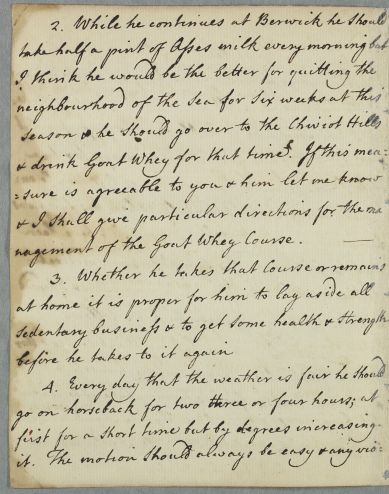 2. While he continues at Berwick he should
take half a pint of Asses milk every morning but
I think he would be the better for quitting the
neighbourhood of the Sea for Six weeks at this
Season & he should go over to the Chiviot Hills
& drink Goat Whey for that time. If this mea-
=sure is agreeable to you & him let me know
& I shall give particular directions for the ma
nagement of the Goat Whey Course.
3. Whether he takes that Course or remains
at home it is proper for him to lay aside all
Sedentary business & to get some health & strength
before he takes to it again
4. Every day that the weather is fair he should
go on horseback for two three or four hours; at
first for a short time but by degrees increasing
it. The motion should always be easy & any vio-